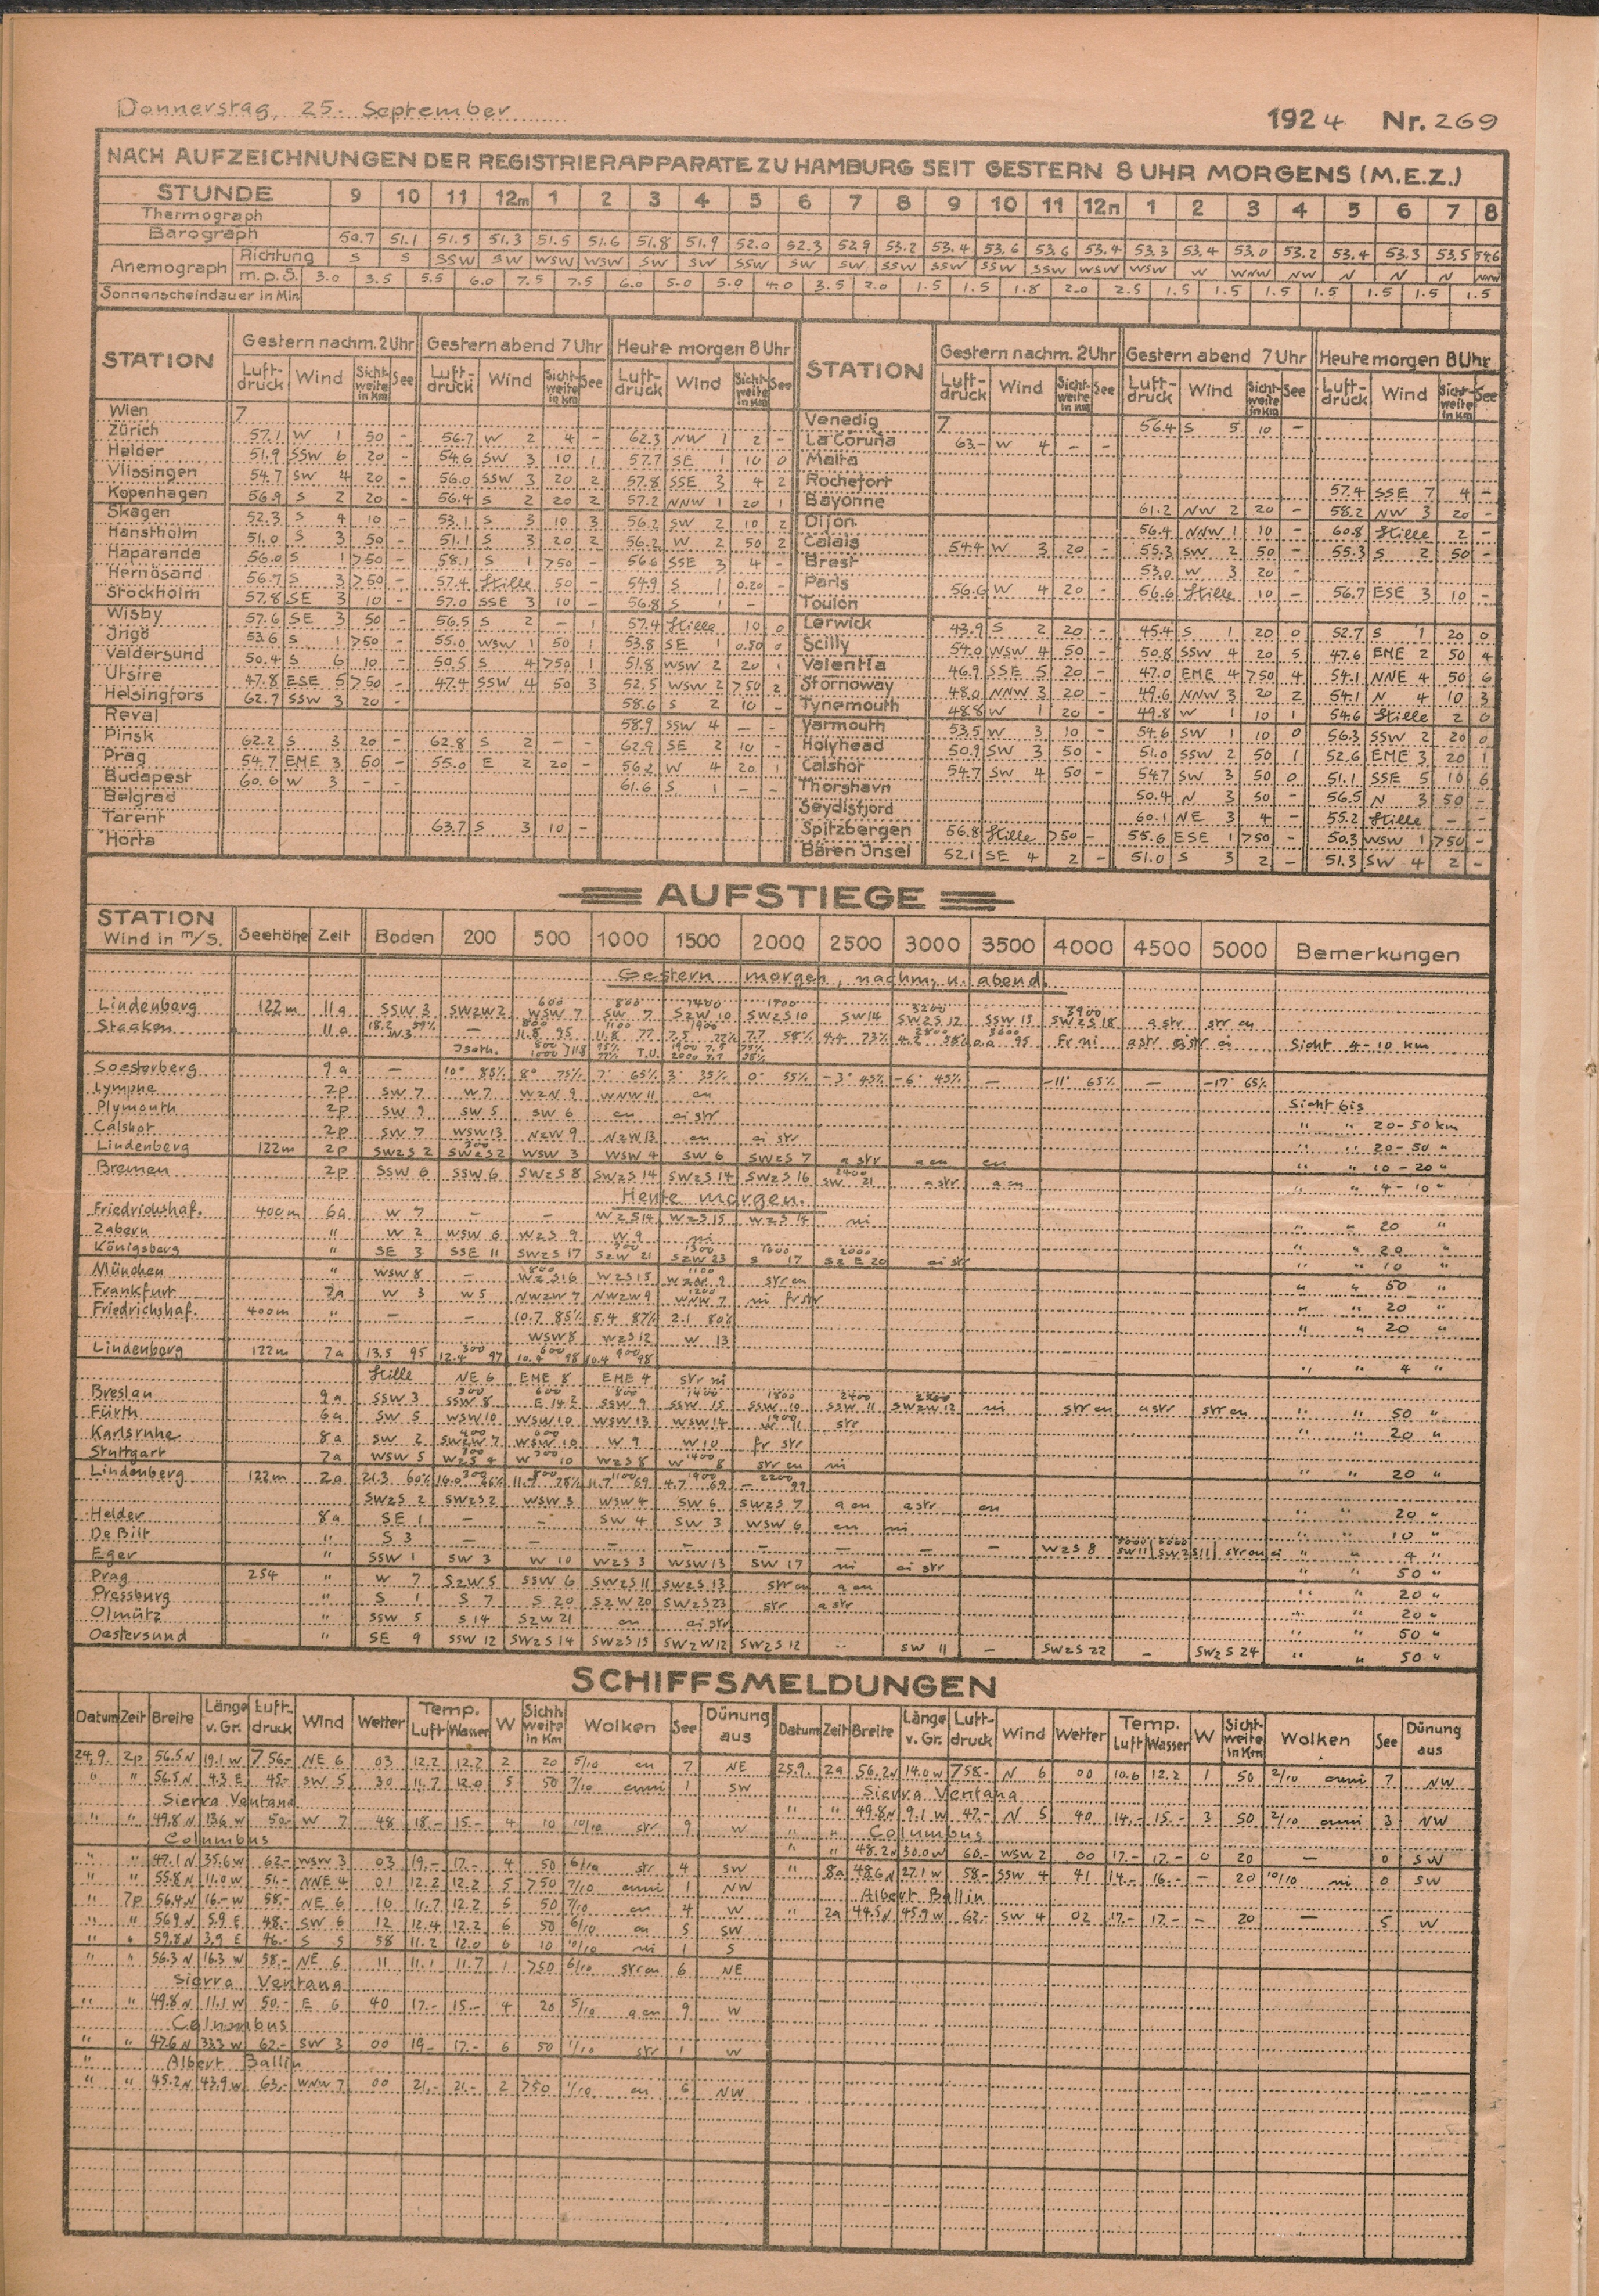 Donnerstag, 25. September 1924 Nr. 269
NACH AUFZEICHNUNGEN DER REGISTRIERAPPARATE ZU HAMBURG SEIT GESTERN 8 UHR MORGENS (M.E.Z.)
STUNDE 9 10 11 12m 1 2 3 4 5 6 7 8 9 10 11 12n 1 2 3 4 5 6 7 8
Thermograph
Barograph 50.7 51.1 51.5 51.3 51.5 51.6 51.8 51.9 52.0 52.3 52.9 53.2 53.4 53.6 53.6 53.4 53.3 53.4 53.0 53.2 53.4 53.3 53.5 54.6
Anemograph Richtung S S SSW SW WSW WSW SW SW SSW SW SW SSW SSW SSW SSW WSW WSW W WNW NW N N N NNW
m.p.S. 3.0 3.5 5.5 6.0 7.5 7.5 6.0 5.0 5.0 4.0 3.5 2.0 1.5 1.5 1.8 2.0 2.5 1.5 1.5 1.5 1.5 1.5 1.5 1.5
Sonnenscheindauer in Min
STATION Gestern nachm. 2 Uhr Gestern abend 7 Uhr Heute morgen 8 Uhr STATION Gestern nachm. 2 Uhr Gestern abend 7 Uhr Heute morgen 8 Uhr
Luftdruck Wind Sichtweite in Km See Luftdruck Wind Sichtweite in Km See Luftdruck Wind Sichtweite in Km See Luftdruck Wind Sichtweite in Km See Luftdruck Wind Sichtweite in Km See Luftdruck Wind Sichtweite in Km See
Wien 7 Venedig 7 56.4 S 5 10 -
Zürich 57.1 W 1 50 - 56.7 W 2 4 - 62.3 NW 1 2 - La Coruña 63.- W 4 - -
Helder 51.9 SSW 6 20 - 54.6 SW 3 10 1 57.7 SE 1 10 0 Malta
Vlissingen 54.7 SW 4 20 - 56.0 SSW 3 20 2 57.8 SSE 3 4 2 Rochefort 57.4 SSE 7 4 -
Kopenhagen 56.9 S 2 20 - 56.4 S 2 20 2 57.2 NNW 1 20 1 Bayonne 61.2 NW 2 20 - 58.2 NW 3 20 -
Skagen 52.3 S 4 10 - 53.1 S 3 10 3 56.2 SW 2 10 2 Dijon 56.4 NNW 1 10 - 60.8 Stille 2 -
Hanstholm 51.0 S 3 50 - 51.1 S 3 20 2 56.2 W 2 50 2 Calais 54.4 W 3 20 - 55.3 SW 2 50 - 55.3 S 2 50 -
Haparanda 56.0 S 1 >50 - 58.1 S 1 >50 - 56.6 SSE 3 4 - Brest 53.0 W 3 20 -
Hernösand 56.7 S 3 >50 - 57.4 Stille 50 - 54.9 S 1 0.20 - Paris 56.6 W 4 20 - 56.6 Stille 10 - 56.7 ESE 3 10 -
Stockholm 57.8 SE 3 10 - 57.0 SSE 3 10 - 56.8 S 1 - Toulon
Wisby 57.6 SE 3 50 - 56.5 S 2 - 1 57.4 Stille 10 0 Lerwick 43.9 S 2 20 - 45.4 S 1 20 0 52.7 S 1 20 0
Ingö 53.6 S 1 >50 - 55.0 WSW 1 50 1 53.8 SE 1 0.50 0 Scilly 54.0 WSW 4 50 - 50.8 SSW 4 20 5 47.6 ENE 2 50 4
Valdersund 50.4 S 6 10 - 50.5 S 4 >50 1 51.8 WSW 2 20 1 Valentia 46.9 SSE 5 20 - 47.0 ENE 4 >50 4 54.1 NNE 4 50 6
Utsire 47.8 ESE 5 >50 - 47.4 SSW 4 50 3 52.5 WSW 2 >50 2 Stornoway 48.0 NNW 3 20 - 49.6 NNW 3 20 2 54.1 N 4 10 3
Helsingfors 62.7 SSW 3 20 - 58.6 S 2 10 - Tynemouth 48.8 W 1 20 - 49.8 W 1 10 1 54.6 Stille 2 0
Reval 58.9 SSW 4 - - Yarmouth 53.5 W 3 10 - 54.6 SW 1 10 0 56.3 SSW 2 20 0
Pinsk 62.2 S 3 20 - 62.8 S 2 - - 62.9 SE 2 10 - Holyhead 50.9 SW 3 50 - 51.0 SSW 2 50 1 52.6 ENE 3 20 1
Prag 54.7 ENE 3 50 - 55.0 E 2 20 - 56.2 W 4 20 1 Calshor 54.7 SW 4 50 - 54.7 SW 3 50 0 51.1 SSE 5 10 6
Budapest 60.6 W 3 - - 61.6 S 1 - - Thorshavn 50.4 N 3 50 - 56.5 N 3 50 -
Belgrad Seydisfjord 60.1 NE 3 4 - 55.2 Stille - -
Tarent 63.7 S 3 10 - Spitzbergen 56.8 Stille >50 - 55.6 ESE 1 >50 - 50.3 WSW 1 >50 -
Horta Bären Insel 52.1 SE 4 2 - 51.0 S 3 2 - 51.3 SW 4 2 -
AUFSTIEGE
STATION Wind in m/S. Seehöhe Zeit Boden 200 500 1000 1500 2000 2500 3000 3500 4000 4500 5000 Bemerkungen
Gestern morgen, nachm. u. abend.
600 800 1400 1900 3200 3900
Lindenberg 122m 11a SSW 3 SWzW 2 WSW 7 SW 7 SzW 10 SWzS 10 SW 14 SWzS 12 SSW 15 SWzS 18 a str str cu
Staaken 11a 18.2 59% W 3 - 11.8 95 11.8 77 7.5 7.7 58% 4.4 73% Fr ni Sicht 4-10 km
Isoth. T.U.
Soesterberg 9a - 10° 85% 8° 75% 7° 65% 3° 35% 0° 55% -3° 45% -6° 45% - -11° 65% - -17° 65%
Lymphe 2p SW 7 W 7 WzN 9 WNW 11 cu
Plymouth 2p SW 9 SW 5 SW 6 cu ci str Sicht bis
Calshor 2p SW 7 WSW 13 NzW 9 NzW 13 cu ci str " " 20-50 km
Lindenberg 122m 2p SWzS 2 SWzS 2 WSW 3 WSW 4 SW 6 SWzS 7 a str a cu cu " " 20-50 "
Bremen 2p SSW 6 SSW 6 SWzS 8 SWzS 14 SWzS 14 SWzS 16 SW 21 a str a cu " " 10-20 "
" " 4-10 "
Heute morgen.
Friedrichshaf. 400m 6a W 7 - - WzS 14 WzS 15 WzS 14 ni
Zabern " W 2 WSW 6 WzS 9 W 9 ni " " 20 "
Königsberg " SE 3 SSE 11 SWzS 17 SzW 21 SzW 23 S 17 SzE 20 ci str " " 20 "
München " WSW 8 - WzS 16 WzS 15 WzN 9 str cu " " 10 "
Frankfurt 7a W 3 W 5 NWzW 7 NWzW 9 WNW 7 ni fr str " " 50 "
Friedrichshaf. 400m " - - 10.7 85% 5.4 87% 2.1 80% " " 20 "
WSW 8 WzS 12 W 13 " " 20 "
Lindenberg 122m 7a 13.5 95 12.4 97 10.4 98 10.4 98
Stille NE 6 ENE 8 ENE 4 str ni " " 4 "
Breslau 9a SSW 3 SSW 8 SSW 9 SSW 15 SSW 10 SSW 11 SWzW 12 ni str cu a str str cu " " 50 "
Fürth 6a SW 5 WSW 10 WSW 10 WSW 13 WSW 14 W 11 str " " 20 "
Karlsruhe 8a SW 2 SWzW 7 WSW 10 W 9 W 10 fr str
Stuttgart 7a WSW 5 WzS 9 W 10 WzS 8 W 8 str cu ni " " 20 "
Lindenberg 122m 2a 21.3 60% 16.0 66% 11.7 69 4.7 69 - 99
SWzS 2 SWzS 2 WSW 3 WSW 4 SW 6 SWzS 7 a cu a str cu
Helder 8a SE 1 - - SW 4 SW 3 WSW 6 cu ni " " 20 "
De Bilt " S 3 - - - - - - - - WzS 8 SW 11 SWzS 11 str cu ci " " 10 "
Eger " SSW 1 SW 3 W 10 WzS 3 WSW 13 SW 17 ni ci str " " 4 "
Prag 254 " W 7 SzW 5 SSW 6 SWzS 11 SWzS 13 str cu a cu " " 50 "
Pressburg " S 1 S 7 S 20 SzW 20 SWzS 23 str a str " " 20 "
Olmütz " SSW 5 S 14 SzW 21 cu ci str " " 20 "
" " 50 "
Oestersund " SE 9 SSW 12 SWzS 14 SWzS 15 SWzW 12 SWzS 12 .. SW 11 - SWzS 22 - SWzS 24 " " 50 "
SCHIFFSMELDUNGEN
Datum Zeit Breite Länge v. Gr. Luftdruck Wind Wetter Temp. Luft Wasser W Sichtweite in Km Wolken See Dünung aus Datum Zeit Breite Länge v. Gr. Luftdruck Wind Wetter Temp. Luft Wasser W Sichtweite in Km Wolken See Dünung aus
24.9. 2p 56.5 N 19.1 W 756.- NE 6 03 12.2 12.2 2 20 5/10 cu 7 NE 25.9. 2a 56.2 N 14.0 W 758.- N 6 00 10.6 12.2 1 50 2/10 cuni 7 NW
" " 56.5 N 4.3 E 45.- SW 5 30 11.7 12.0 5 50 7/10 cuni 1 SW Sierra Ventana
Sierra Ventana " " 49.8 N 9.1 W 47.- N 5 40 14.- 15.- 3 50 2/10 cuni 3 NW
" " 49.8 N 13.6 W 50.- W 7 48 18.- 15.- 4 10 10/10 str 9 W " " Columbus
Columbus " " 48.2 N 30.0 W 60.- WSW 2 00 17.- 17.- 0 20 - 0 SW
" " 47.1 N 35.6 W 62.- WSW 3 03 19.- 17.- 4 50 6/10 str 4 SW " 8a 48.6 N 27.1 W 58.- SSW 4 41 14.- 16.- - 20 10/10 ni 0 SW
" " 55.8 N 11.0 W 51.- NNE 4 01 12.2 12.2 5 >50 7/10 cuni 1 NW Albert Ballin
" 7p 56.4 N 16.- W 58.- NE 6 10 11.7 12.2 5 50 7/10 cu 4 W " 2a 44.5 N 45.9 W 62.- SW 4 02 17.- 17.- - 20 - 5 W
" " 56.9 N 5.9 E 48.- SW 6 12 12.4 12.2 6 50 6/10 cu 5 SW
" " 59.8 N 3.9 E 46.- S 5 58 11.2 12.0 6 10 10/10 ni 1 S
" " 56.3 N 16.3 W 58.- NE 6 11 11.1 11.7 1 >50 6/10 str cu 6 NE
Sierra Ventana
" " 49.8 N 11.1 W 50.- E 6 40 17.- 15.- 4 20 5/10 a cu 9 W
Columbus
" " 47.6 N 33.3 W 62.- SW 3 00 19.- 17.- 6 50 1/10 str 1 W
" Albert Ballin
" " 45.2 N 43.9 W 63.- WNW 7 00 21.- 21.- 2 >50 1/10 cu 6 NW